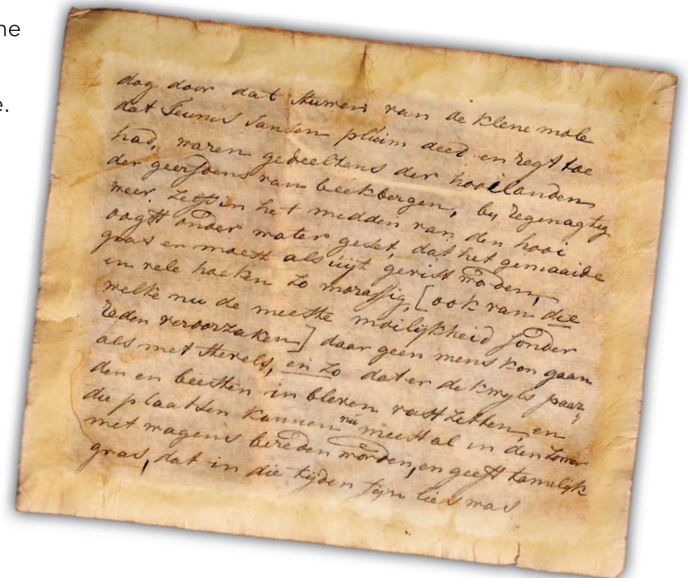 ne
e.
dog door dat stuwen van de klene mole
dat Teunis Jansen pluim deed en regt toe
had, waren gedeeltens der hooilanden
der geerfdens van beekbergen, bij regenagtig
weer zelfs in het midden van den hooi
oogst onder water gezet, dat het gemaaide
gras er moest als uijt gevist worden,
en vele hoeken zo morassig, [ook van die
welke nu de meeste moilijkheid sonder
reden veroorzaken] daar geen mens kon gaan
als met stevels, en zo dat er dikwijls paar,
den en beesten in bleven vast zitten, en
die plaatsen kunnen nu meest al in den zomer
met wagens bereden worden, en geeft tamelijk
gras, dat in die tijden sijn lies was